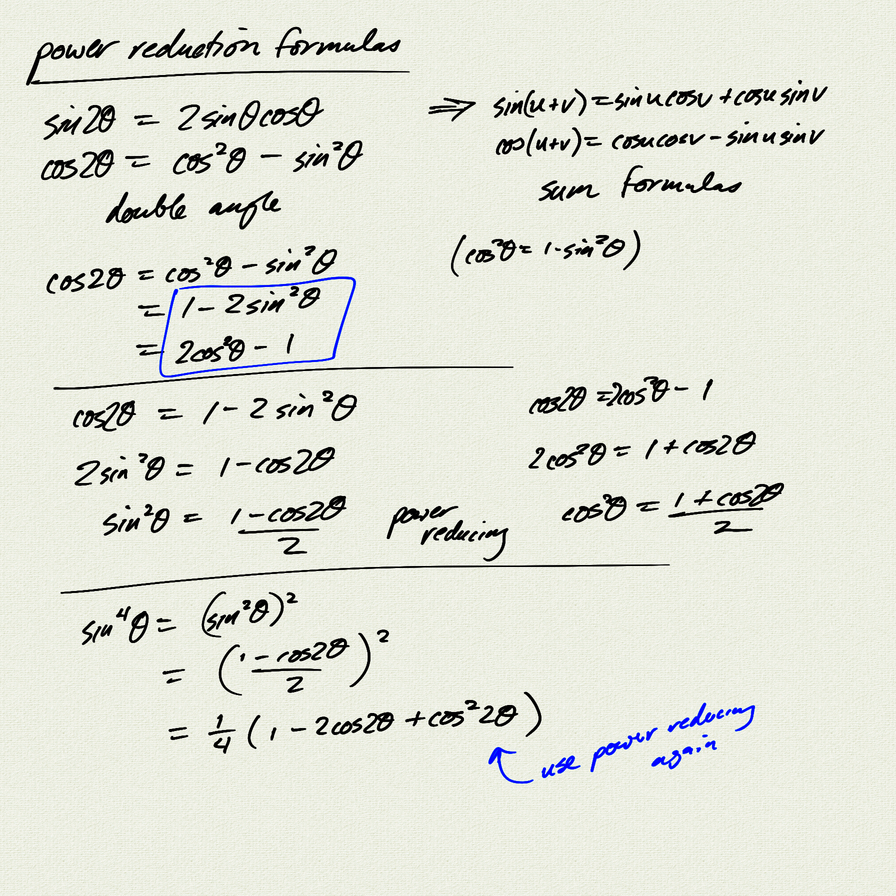 power reduction formulas
sin2θ = 2sinθcosθ
cos2θ = cos²θ − sin²θ
double angle
⇒ sin(u+v)=sinucosv+cosusinv
cos(u+v)= cosucosv−sinusinv
sum formulas
cos2θ = cos²θ − sin²θ
= 1 − 2sin²θ
= 2cos²θ − 1
(cos²θ = 1-sin²θ)
cos2θ = 1 − 2 sin²θ
2sin²θ = 1−cos2θ
sin²θ = (1−cos2θ)/2
power
reducing
cos2θ =2cos²θ − 1
2cos²θ = 1+cos2θ
cos²θ = (1+cos2θ)/2
sin⁴θ = (sin²θ)²
= ((1−cos2θ)/2)²
= 1/4 (1 − 2cos2θ + cos²2θ)
use power reducing
again